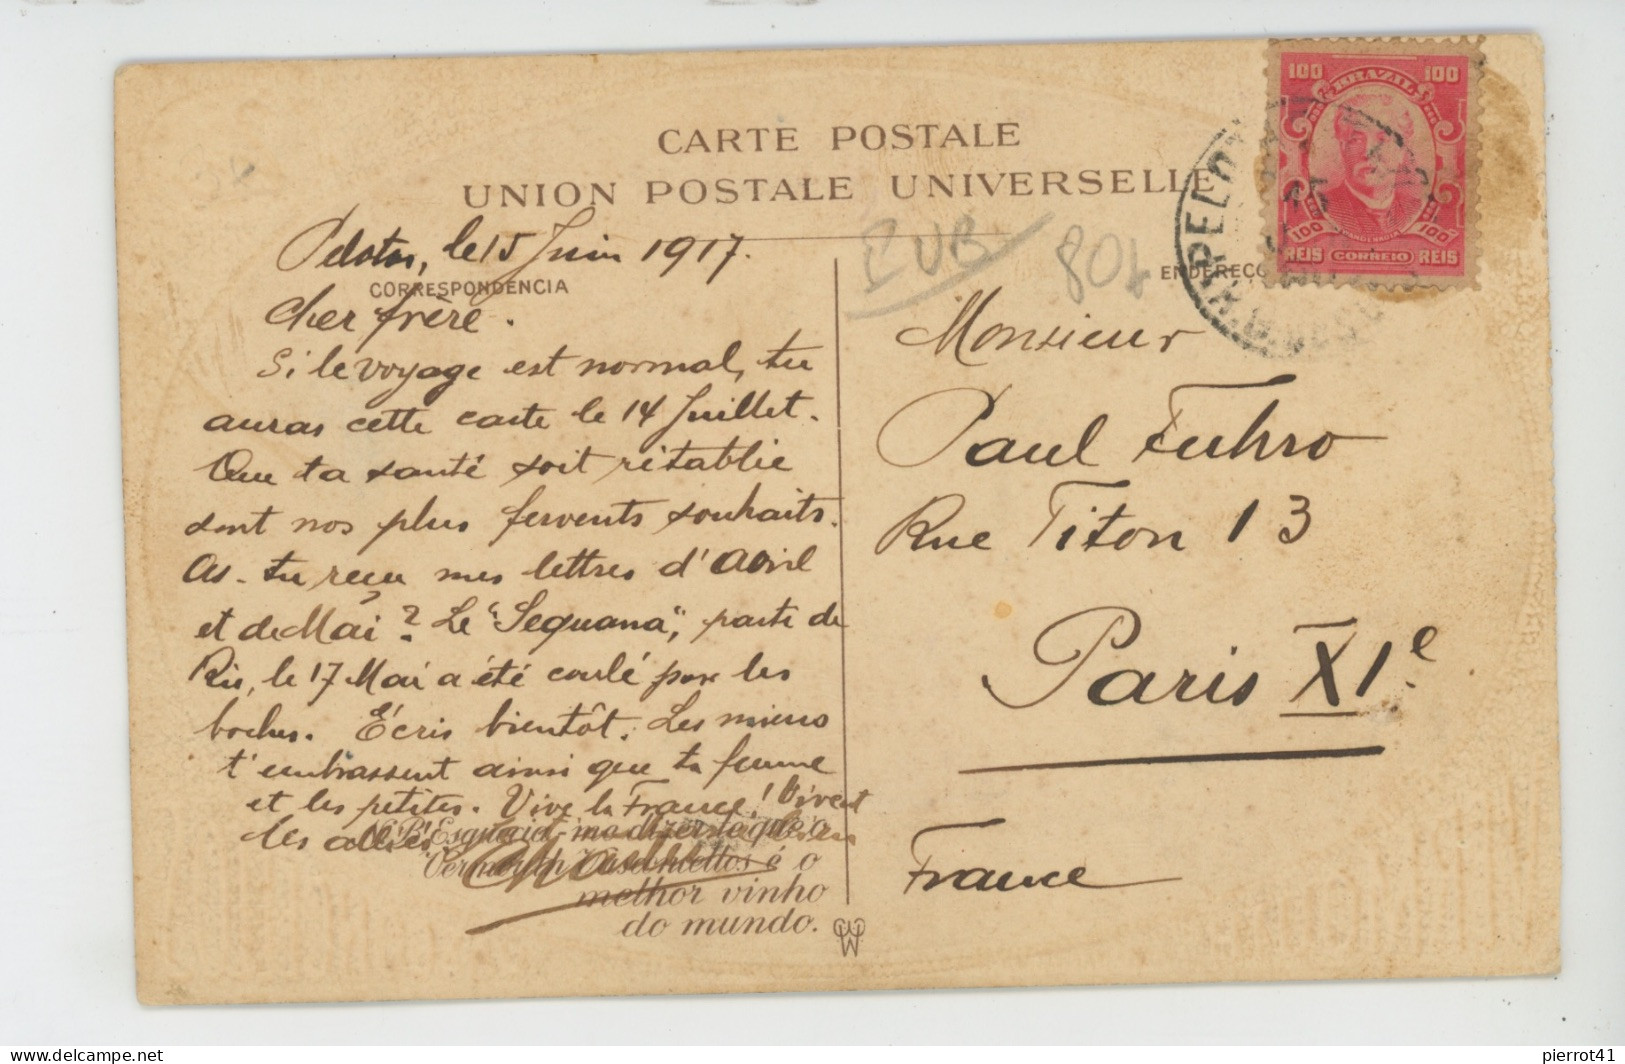 CARTE POSTALE
UNION POSTALE UNIVERSELLE
100 BRAZIL 100
100 100
REIS CORREIO REIS
PELOTAS
PUB
80k
Pelotas, le 15 Juin 1917.
CORRESPONDENCIA
Cher frère.
Si le voyage est normal, tu
auras cette carte le 14 Juillet.
Que ta santé soit rétablie
sont nos plus fervents souhaits.
As-tu reçu mes lettres d'Avril
et de Mai? Le "Sequana", parti de
Rio, le 17 Mai a été coulé par les
boches. Écris bientôt. Les miens
t'embrassent ainsi que ta femme
et les petites. Vive la France! Vivent
les alliés
N. B. Esqueci-me dizer-te que o
Vermouth é o
melhor vinho
do mundo.
ENDEREÇO
Monsieur
Paul Fuhro
Rue Titon 13
Paris XIe.
France
pierrot41